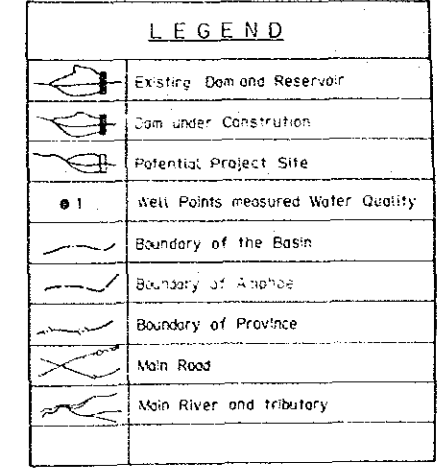 LEGEND
Existing Dam and Reservoir
Dam under Constrution
Potential Project Site
1 Well Points measured Water Quality
Boundary of the Basin
Boundary of Amphoe
Boundary of Province
Main Road
Main River and tributary